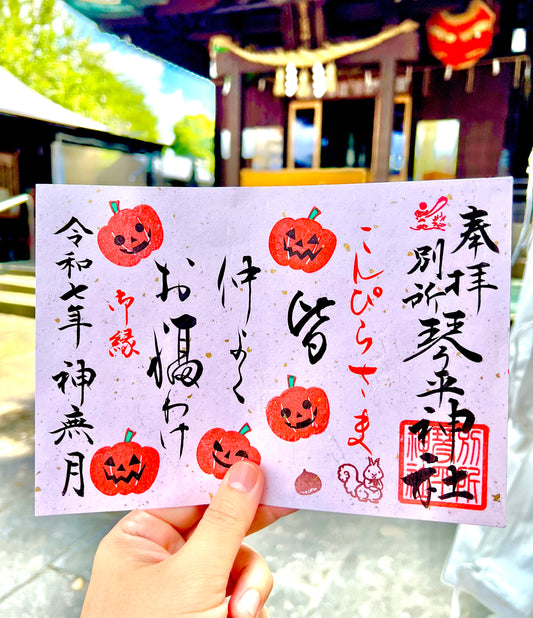 奉拝
別所琴平神社
こんぴらさま
皆
仲よく
お福わけ
御縁
令和七年 神無月